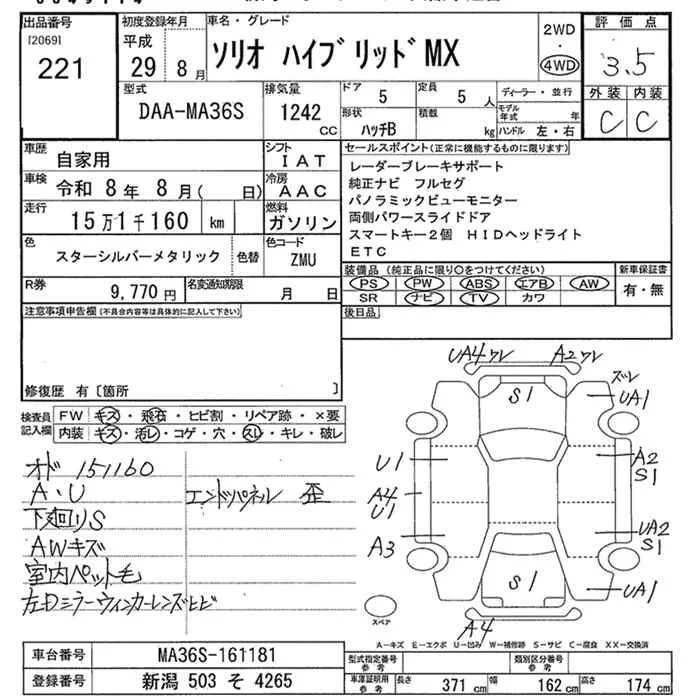 出品番号
[2069]
221
初度登録年月
平成
29 8月
車名・グレード
ソリオ ハイブリッドMX
2WD
・
4WD
評価点
3.5
外装 内装
C C
型式
DAA-MA36S
排気量
1242 CC
ドア 5
定員 5 人
形状 ハッチB
積載 kg
ディーラー・並行
モデル年式 年
ハンドル 左・右
車歴 自家用
シフト IAT
車検 令和 8年 8月( 日)
冷房 AAC
走行 15万1千160 km
燃料 ガソリン
色 スターシルバーメタリック 色替
色コード ZMU
R券 9,770円
名変通知期限 月 日
セールスポイント(正常に機能するものに限ります)
レーダーブレーキサポート
純正ナビ フルセグ
パノラミックビューモニター
両側パワースライドドア
スマートキー2個 HIDヘッドライト
ETC
装備品(純正品に限り○をつけてください)
PS PW ABS エアB AW
SR ナビ TV カワ
新車保証書
有・無
後日品
注意事項申告欄(不具合内容等は具体的に記入して下さい)
修復歴 有〔箇所 〕
検査員記入欄
FW キズ・飛石・ヒビ割・リペア跡・×要
内装 キズ・汚レ・コゲ・穴・スレ・キレ・破レ
オド 151160
A・U エンドパネル 歪
下廻りS
AWキズ
室内ペット毛
左Dミラーウィンカーレンズヒビ
UA4ワレ A2ワレ
ズレ
S1 UA1
U1 A2
S1
A4
U1
UA2
A3 S1
S1 UA1
スペア
A4
A-キズ E-エクボ U-凹み W-補修跡 S-サビ C-腐食 XX-交換済
車台番号 MA36S-161181
登録番号 新潟 503 そ 4265
型式指定番号 参考
類別区分番号 参考
車庫証明用 参考
長さ 371cm 幅 162cm 高さ 174cm